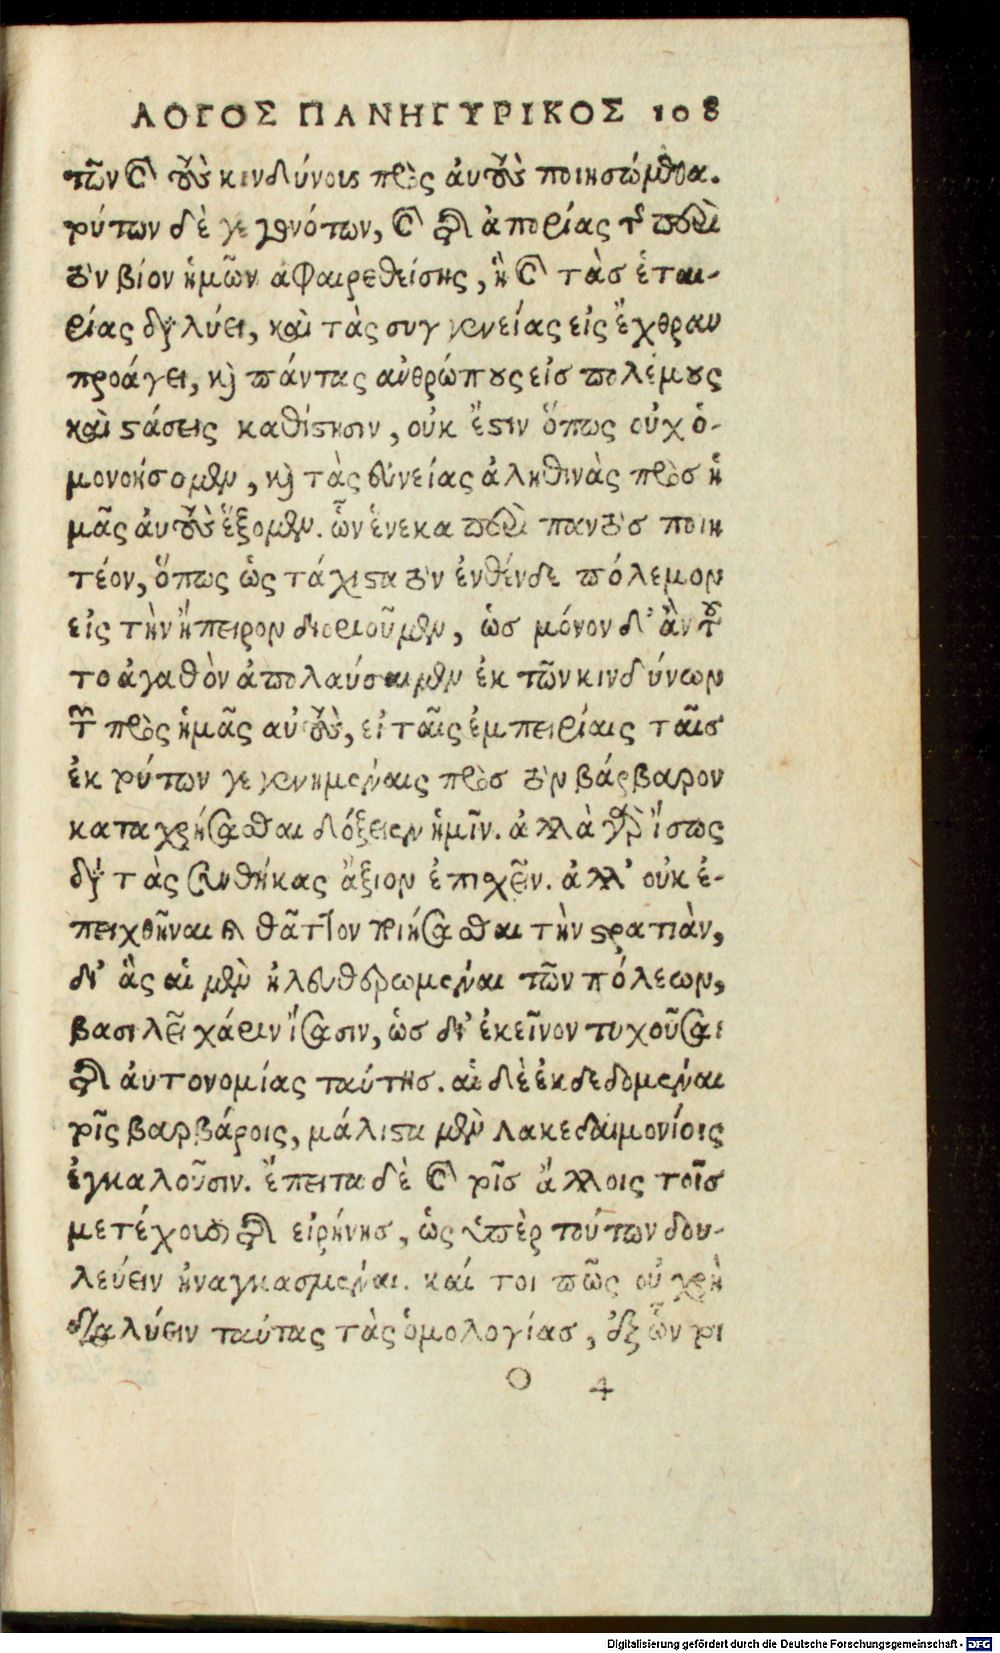 ΛΟΓΟΣ ΠΑΝΗΓΥΡΙΚΟΣ 108
των καὶ τοὺς κινδύνους πρὸς αὑτοὺς ποιησώμεθα.
τούτων δὲ γεγενότων, καὶ τῆς ἀπορίας τῆς περὶ
τὸν βίον ἡμῶν ἀφαιρεθείσης, ἣ καὶ τὰς ἑται-
ρίας διαλύει, καὶ τὰς συγγενείας εἰς ἔχθραν
προάγει, καὶ πάντας ἀνθρώπους εἰς πολέμους
καὶ στάσεις καθίστησιν, οὐκ ἔστιν ὅπως οὐχ ὁ-
μονοήσομεν, καὶ τὰς εὐνείας ἀληθινὰς πρὸς ἡ
μᾶς αὐτοὺς ἕξομεν. ὧν ἕνεκα περὶ παντὸς ποιη
τέον, ὅπως ὡς τάχιστα τὸν ἐνθένδε πόλεμον
εἰς τὴν ἤπειρον διοριοῦμεν, ὡς μόνον δ' ἂν τοῦ
το ἀγαθὸν ἀπολαύσαιμεν ἐκ τῶν κινδύνων
τῶν πρὸς ἡμᾶς αὐτοὺς, εἰ ταῖς ἐμπειρίαις ταῖς
ἐκ τούτων γεγενημέναις πρὸς τὸν βάρβαρον
καταχρήσασθαι δόξειεν ἡμῖν. ἀλλὰ γὰρ ἴσως
διὰ τὰς συνθήκας ἄξιον ἐπισχεῖν. ἀλλ' οὐκ ἐ-
πειχθῆναι καὶ θᾶττον ποιήσασθαι τὴν στρατιὰν,
δι' ἃς αἱ μὲν ἠλευθερωμέναι τῶν πόλεων,
βασιλεῖ χάριν ἴσασιν, ὡς δι' ἐκεῖνον τυχοῦσαι
τῆς αὐτονομίας ταύτης. αἱ δὲ ἐκδεδομέναι
τοῖς βαρβάροις, μάλιστα μὲν Λακεδαιμονίοις
ἐγκαλοῦσιν. ἔπειτα δὲ καὶ τοῖς ἄλλοις τοῖς
μετέχουσι τῆς εἰρήνης, ὡς ὑπὲρ τούτων δου-
λεύειν ἠναγκασμέναι. καί τοι πῶς οὐ χρὴ
διαλύειν ταύτας τὰς ὁμολογίας, ἐξ ὧν τοι
O 4
Digitalisierung gefördert durch die Deutsche Forschungsgemeinschaft - DFG